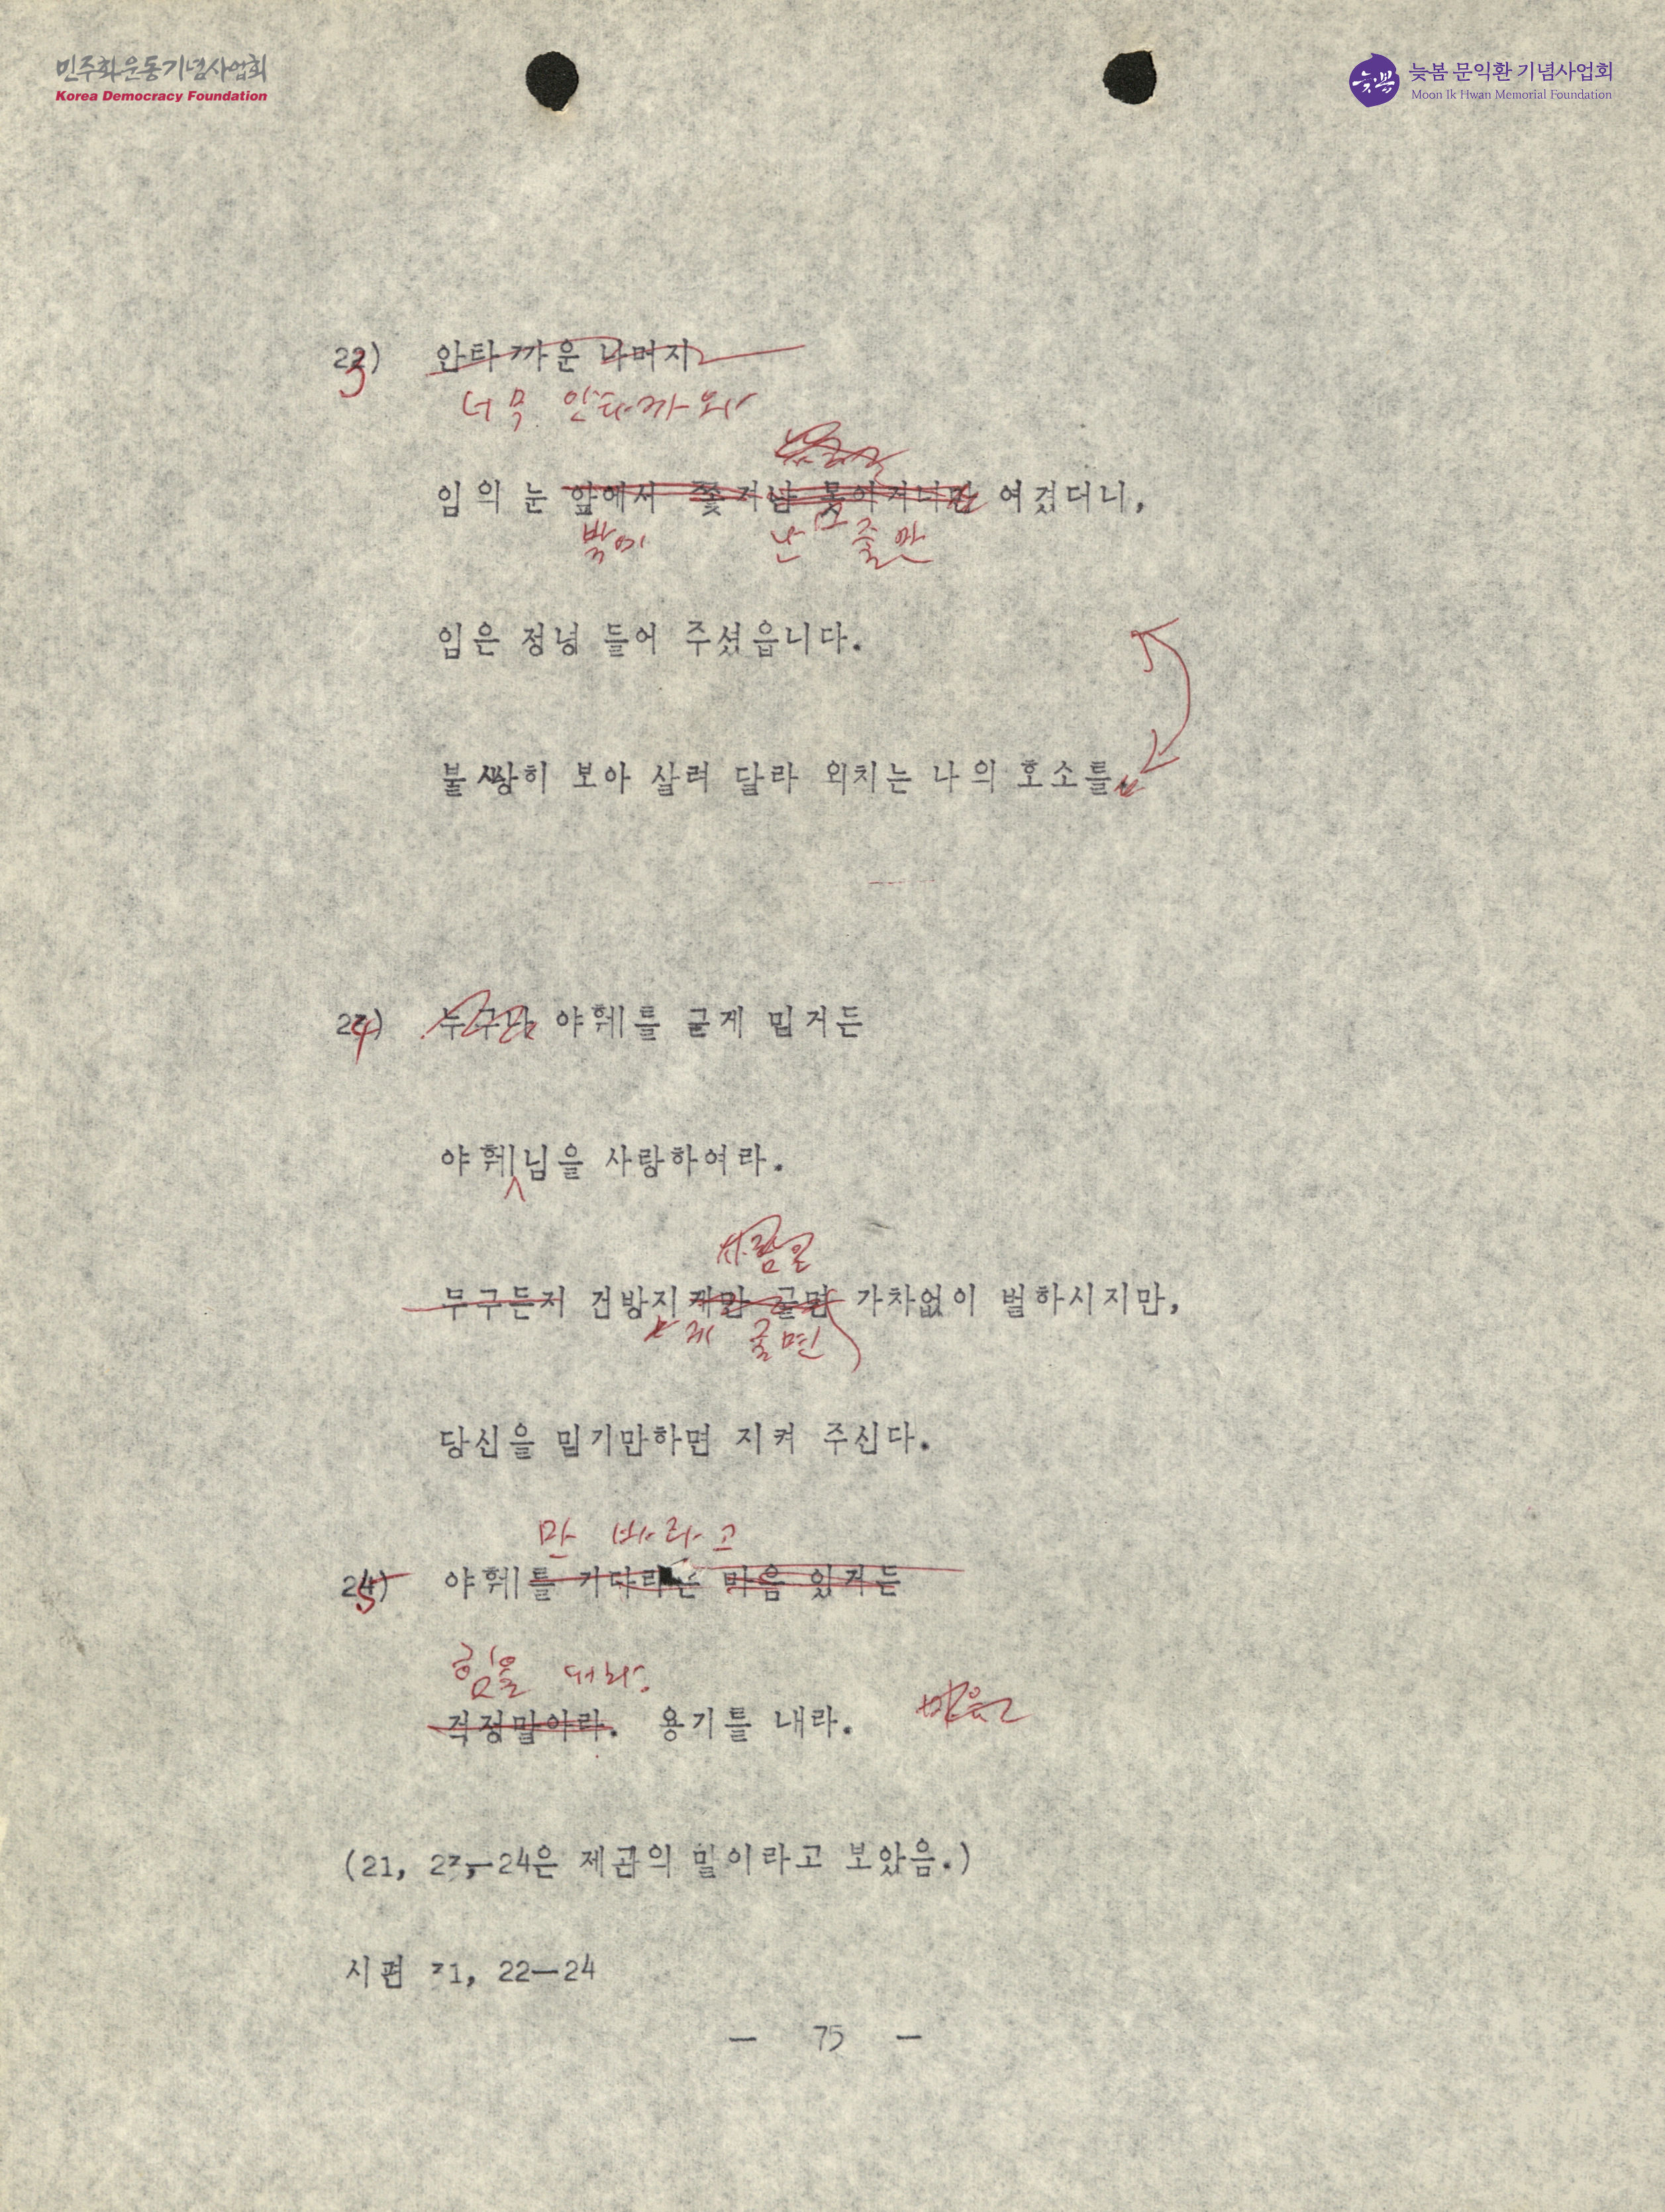 민주화운동기념사업회
Korea Democracy Foundation
늦봄 문익환 기념사업회
Moon Ik Hwan Memorial Foundation
22) 안타까운 나머지
3
너무 안타까와
임의 눈 앞에서 쫓겨남 못이거니만 여겼더니,
밖에 난 줄만
임은 정녕 들어 주셨읍니다.
불쌍히 보아 살려 달라 외치는 나의 호소를
23) 누구나 야훼를 굳게 믿거든
4
야훼님을 사랑하여라.
사람은
무구든저 건방지게만 굴면 가차없이 벌하시지만,
게 굴면
당신을 믿기만하면 지켜 주신다.
만 바라고
24) 야훼를 기다리는 마음 있거든
5
힘을 내라.
걱정말아라. 용기를 내라.
(21, 23,—24은 제관의 말이라고 보았음.)
시편 31, 22—24
— 75 —